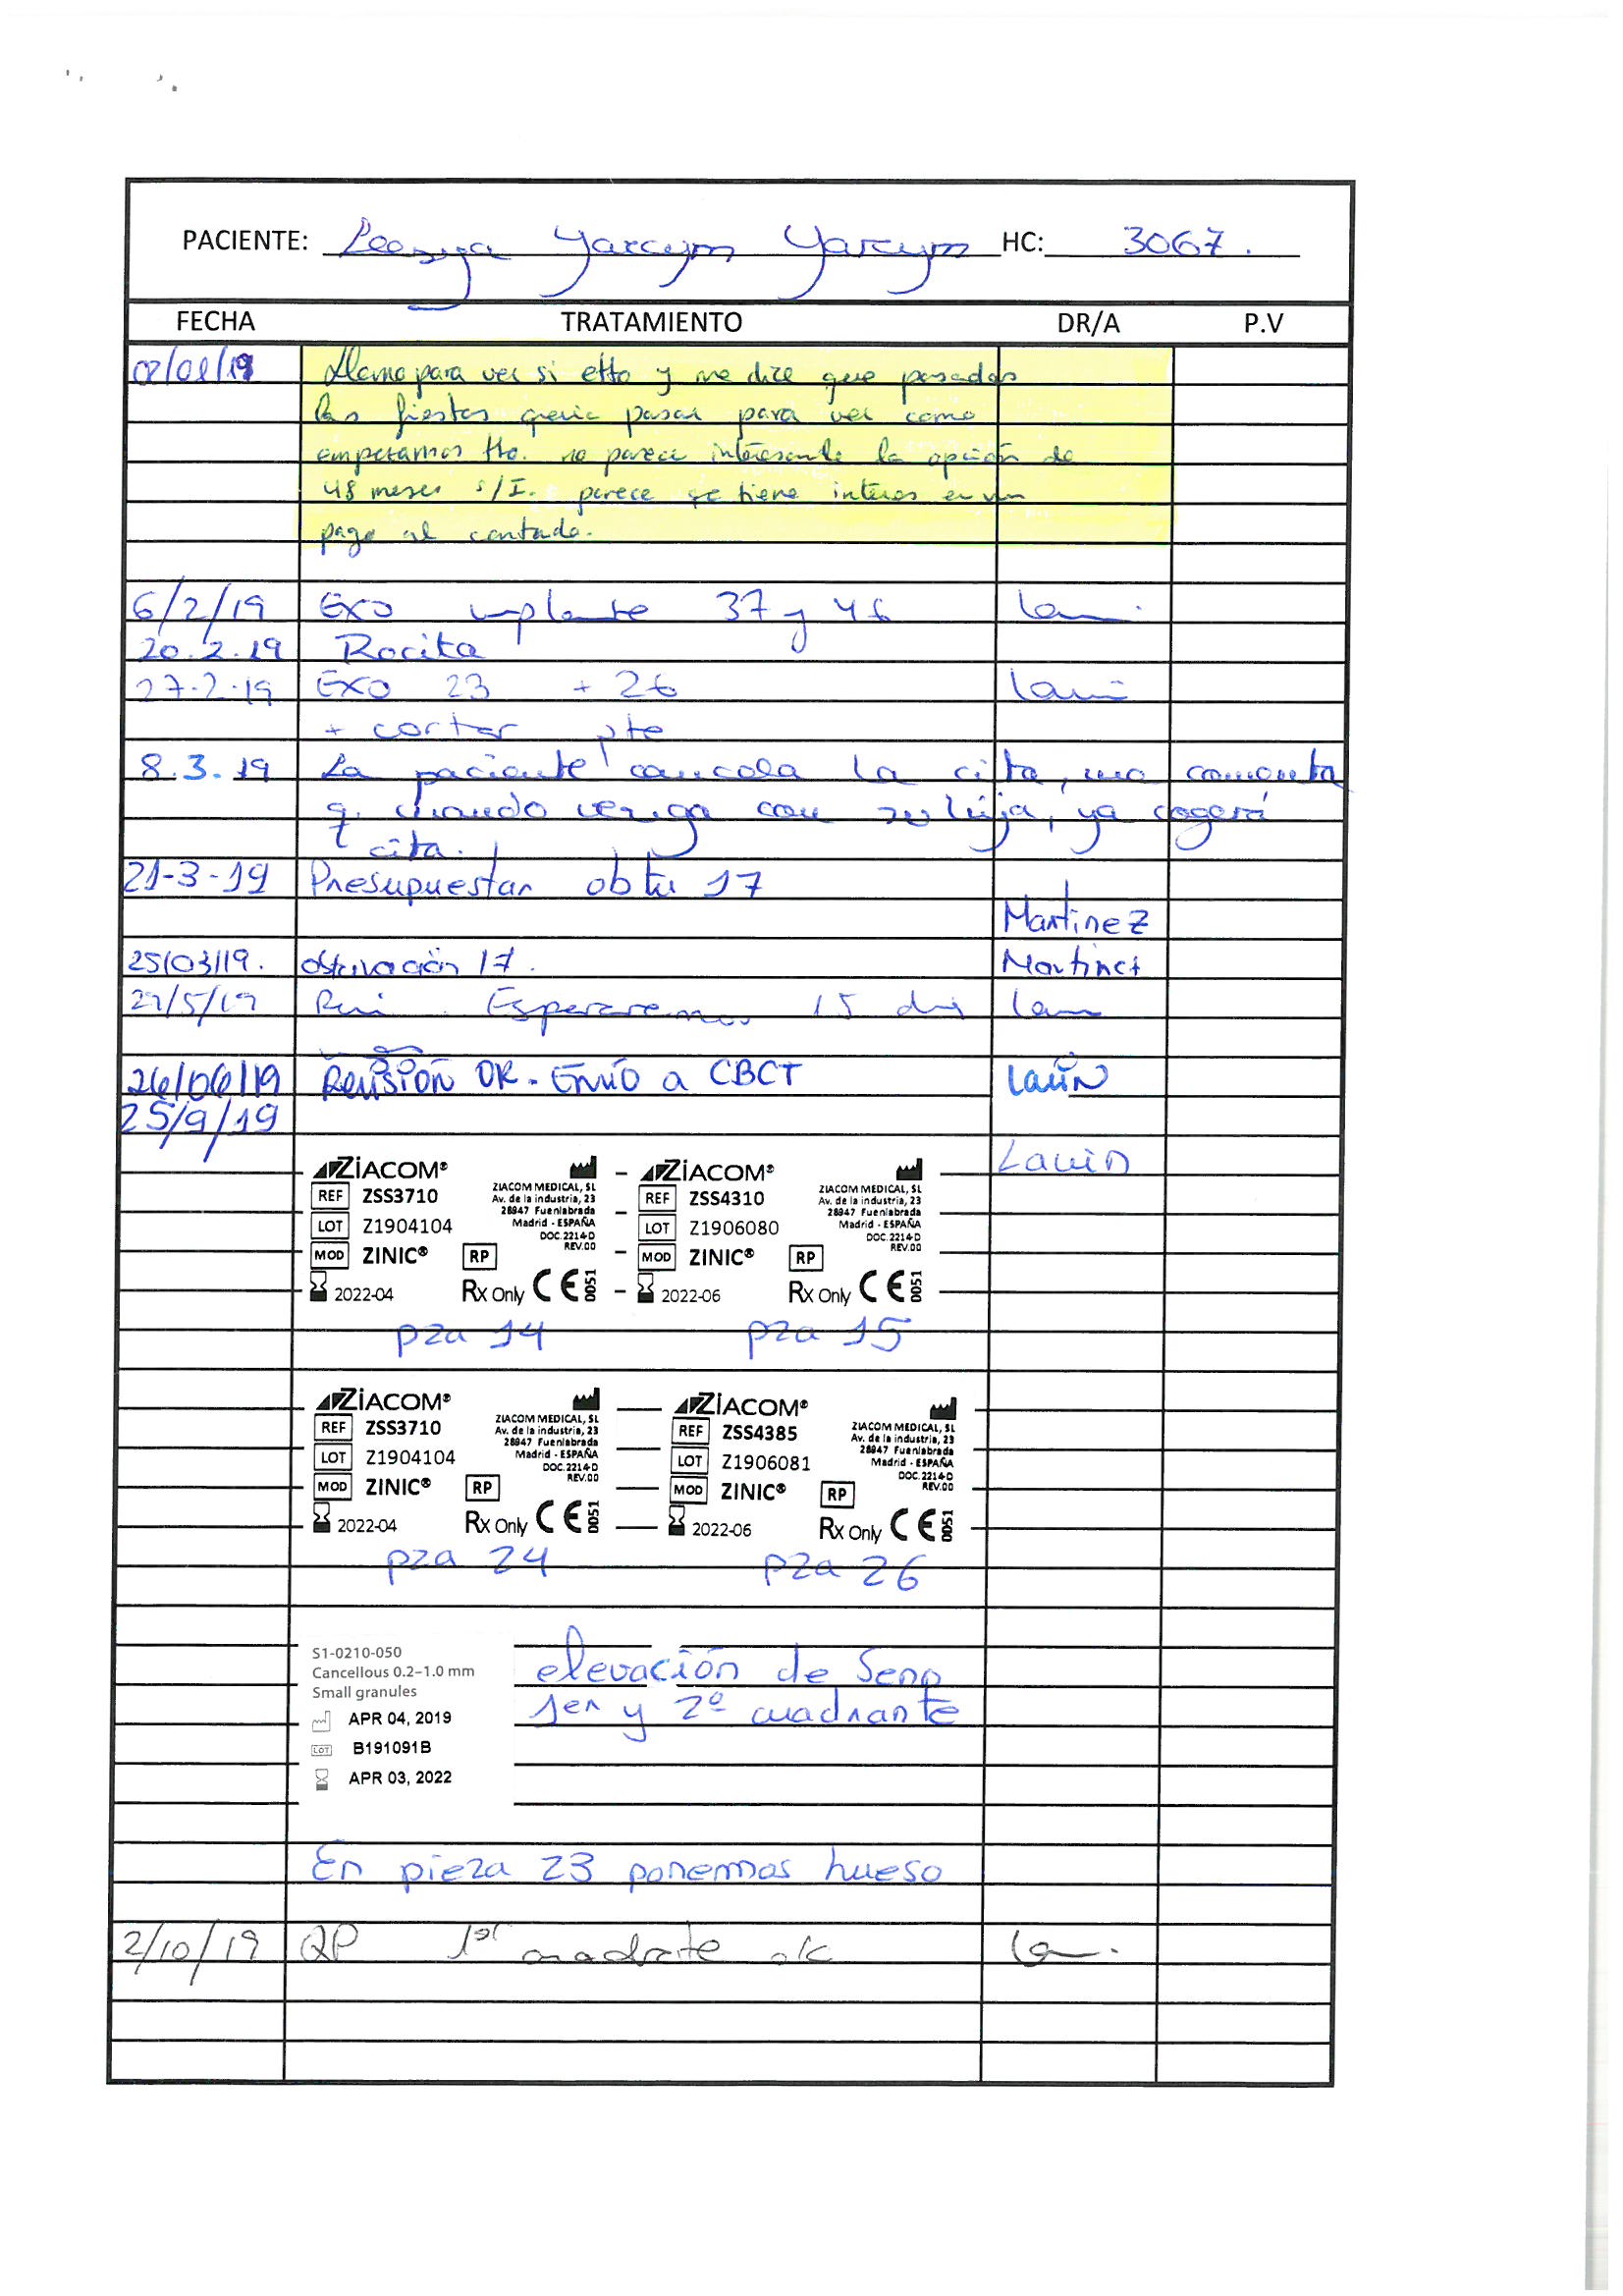 PACIENTE: Yarcym Yarcym HC: 3067.
FECHA TRATAMIENTO DR/A P.V
02/01/19 Llamo para ver si etto y me dice que pasadas
las fiestas queria pasar para ver como
empezamos tto. no parece interesante la opción de
48 meses s/I. parece qe tiene interes en un
pago al contado.
6/2/19 Exo implante 37 y 46
20.2.19 Recita
27.2.19 Exo 23 + 26
+ cortar pte
8.3.19 La paciente cancela la cita, me comenta
q. cuando venga con su hija, ya cogerá
cita.
21-3-19 Presupuestar obtu 17
Martinez
25/03/19. obturación 17. Martinez
29/5/19 Esperaremos 15 dias
26/06/19 Revisión OK - Envío a CBCT Lavín
25/9/19
Lavin
ZIACOM®
REF ZSS3710
LOT Z1904104
MOD ZINIC® RP
2022-04 Rx Only CE 0051
ZIACOM MEDICAL, SL
Av. de la industria, 23
28947 Fuenlabrada
Madrid - ESPAÑA
DOC.2214-D
REV.00
ZIACOM®
REF ZSS4310
LOT Z1906080
MOD ZINIC® RP
2022-06 Rx Only CE 0051
ZIACOM MEDICAL, SL
Av. de la industria, 23
28947 Fuenlabrada
Madrid - ESPAÑA
DOC.2214-D
REV.00
pza 14 pza 15
ZIACOM®
REF ZSS3710
LOT Z1904104
MOD ZINIC® RP
2022-04 Rx Only CE 0051
ZIACOM MEDICAL, SL
Av. de la industria, 23
28947 Fuenlabrada
Madrid - ESPAÑA
DOC.2214-D
REV.00
ZIACOM®
REF ZSS4385
LOT Z1906081
MOD ZINIC® RP
2022-06 Rx Only CE 0051
ZIACOM MEDICAL, SL
Av. de la industria, 23
28947 Fuenlabrada
Madrid - ESPAÑA
DOC.2214-D
REV.00
pza 24 pza 26
S1-0210-050
Cancellous 0.2–1.0 mm
Small granules
APR 04, 2019
LOT B191091B
APR 03, 2022
elevación de Seno
1er y 2º cuadrante
En pieza 23 ponemos hueso
2/10/19 QP 1er cuadrante ok